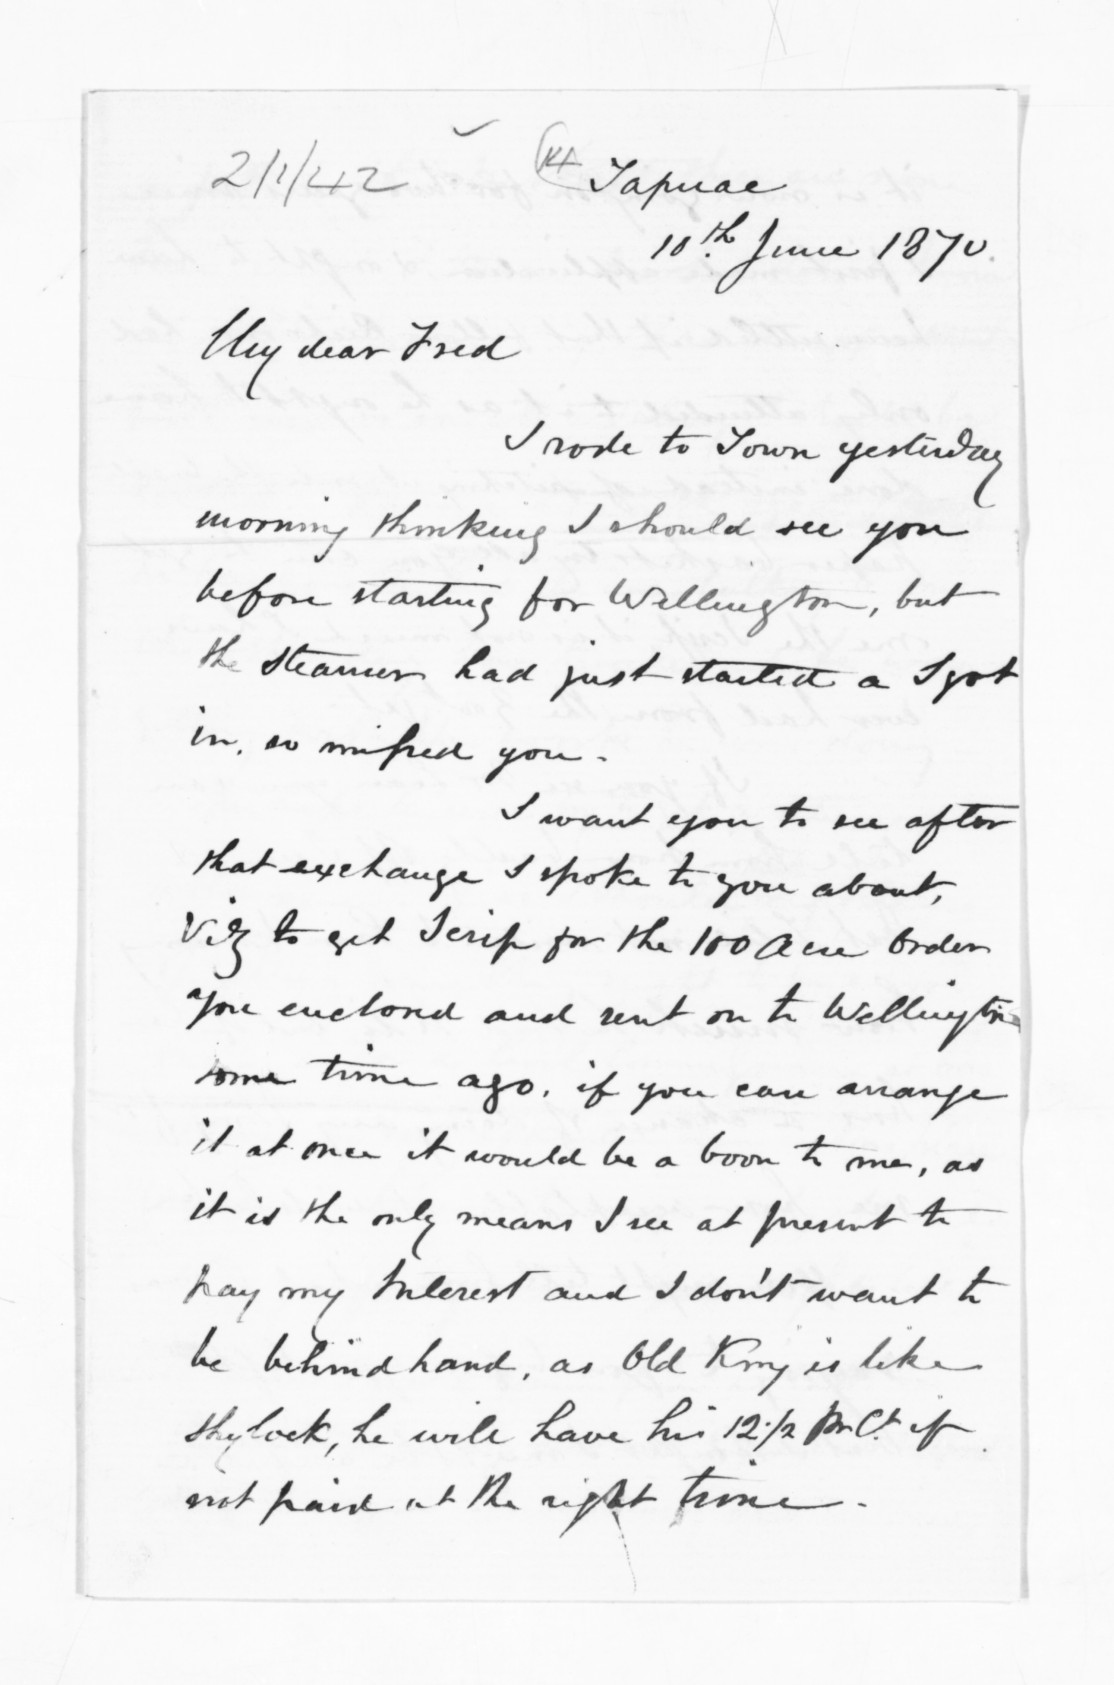 2/1/42
Tapuae
10th June 1870.
My dear Fred
I rode to Town yesterday
morning thinking I should see you
before starting for Wellington, but
the steamer had just started a I got
in, so missed you.
I want you to see after
that exchange I spoke to you about,
Viz to get Scrip for the 100 Acre Order
you enclosed and sent on to Wellington
some time ago. if you can arrange
it at once it would be a boon to me, as
it is the only means I see at present to
pay my Interest and I don't want to
be behindhand, as Old King is like
Shylock, he will have his 12 1/2 Pr Ct. if
not paid at the right time.